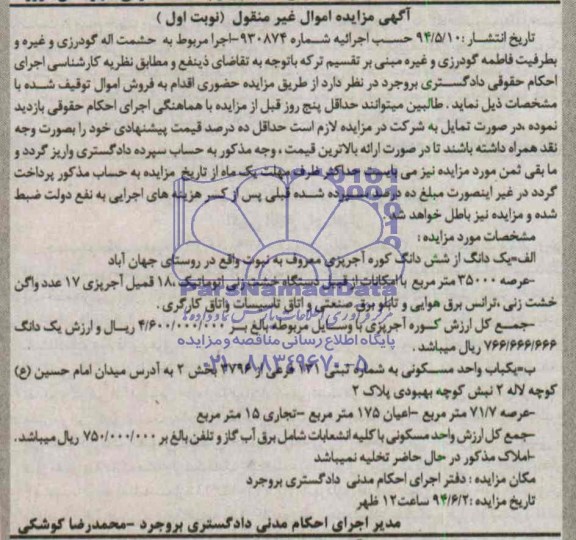 آگهی مزایده اموال غیر منقول (نوبت اول )
تاریخ انتشار :۹۴/۵/۱۰ حسب اجرائیه شماره ۹۳۰۸۷۴-اجرا مربوط به حشمت اله گودرزی و غیره و
بطرفیت فاطمه گودرزی و غیره مبنی بر تقسیم ترکه باتوجه به تقاضای ذینفع و مطابق نظریه کارشناسی اجرای
احکام حقوقی دادگستری بروجرد در نظر دارد از طریق مزایده حضوری اقدام به فروش اموال توقیف شده با
مشخصات ذیل نماید . طالبین میتوانند حداقل پنج روز قبل از مزایده با هماهنگی اجرای احکام حقوقی بازدید
نموده ،در صورت تمایل به شرکت در مزایده لازم است حداقل ده درصد قیمت پیشنهادی خود را بصورت وجه
نقد همراه داشته باشند تا در صورت ارائه بالاترین قیمت ، وجه مذکور به حساب سپرده دادگستری واریز گردد و
ما بقی ثمن مورد مزایده نیز می بایست حداکثر ظرف مهلت یک ماه از تاریخ مزایده به حساب مذکور پرداخت
گردد در غیر اینصورت مبلغ ده درصد سپرده شده قبلی پس از کسر هزینه های اجرایی به نفع دولت ضبط
شده و مزایده نیز باطل خواهد شد .
مشخصات مورد مزایده :
الف=یک دانگ از شش دانگ کوره آجرپزی معروف به نبوت واقع در روستای جهان آباد
-عرصه ۳۵۰۰۰ متر مربع با امکانات از قبیل دستگاه خشت زنی اتوماتیک ،۱۸ قمیل آجرپزی ۱۷ عدد واگن
خشت زنی ،ترانس برق هوایی و تابلو برق صنعتی و اتاق تاسیسات واتاق کارگری .
-جمع کل ارزش کوره آجرپزی با وسایل مربوطه بالغ بر ۴/۶۰۰/۰۰۰/۰۰۰ ریال و ارزش یک دانگ
۷۶۶/۶۶۶/۶۶۶ ریال میباشد .
ب=یکباب واحد مسکونی به شماره ثبتی ۱۳۱ فرعی از ۴۷۹۶ بخش ۲ به آدرس میدان امام حسین (ع)
کوچه لاله ۲ نبش کوچه بهبودی پلاک ۲
-عرصه ۷۱/۷ متر مربع -اعیان ۱۷۵ متر مربع -تجاری ۱۵ متر مربع
-جمع کل ارزش واحد مسکونی با کلیه انشعابات شامل برق آب گاز و تلفن بالغ بر ۷۵۰/۰۰۰/۰۰۰ ریال میباشد.
-املاک مذکور در حال حاضر تخلیه نمیباشد
مکان مزایده : دفتر اجرای احکام مدنی دادگستری بروجرد
تاریخ مزایده :۹۴/۶/۲ ساعت ۱۲ ظهر
مدیر اجرای احکام مدنی دادگستری بروجرد -محمدرضا کوشکی
ParsNamadData
پایگاه اطلاع رسانی مناقصه و مزایده
۰۲۱-۸۸۳۴۹۶۷۰-۵